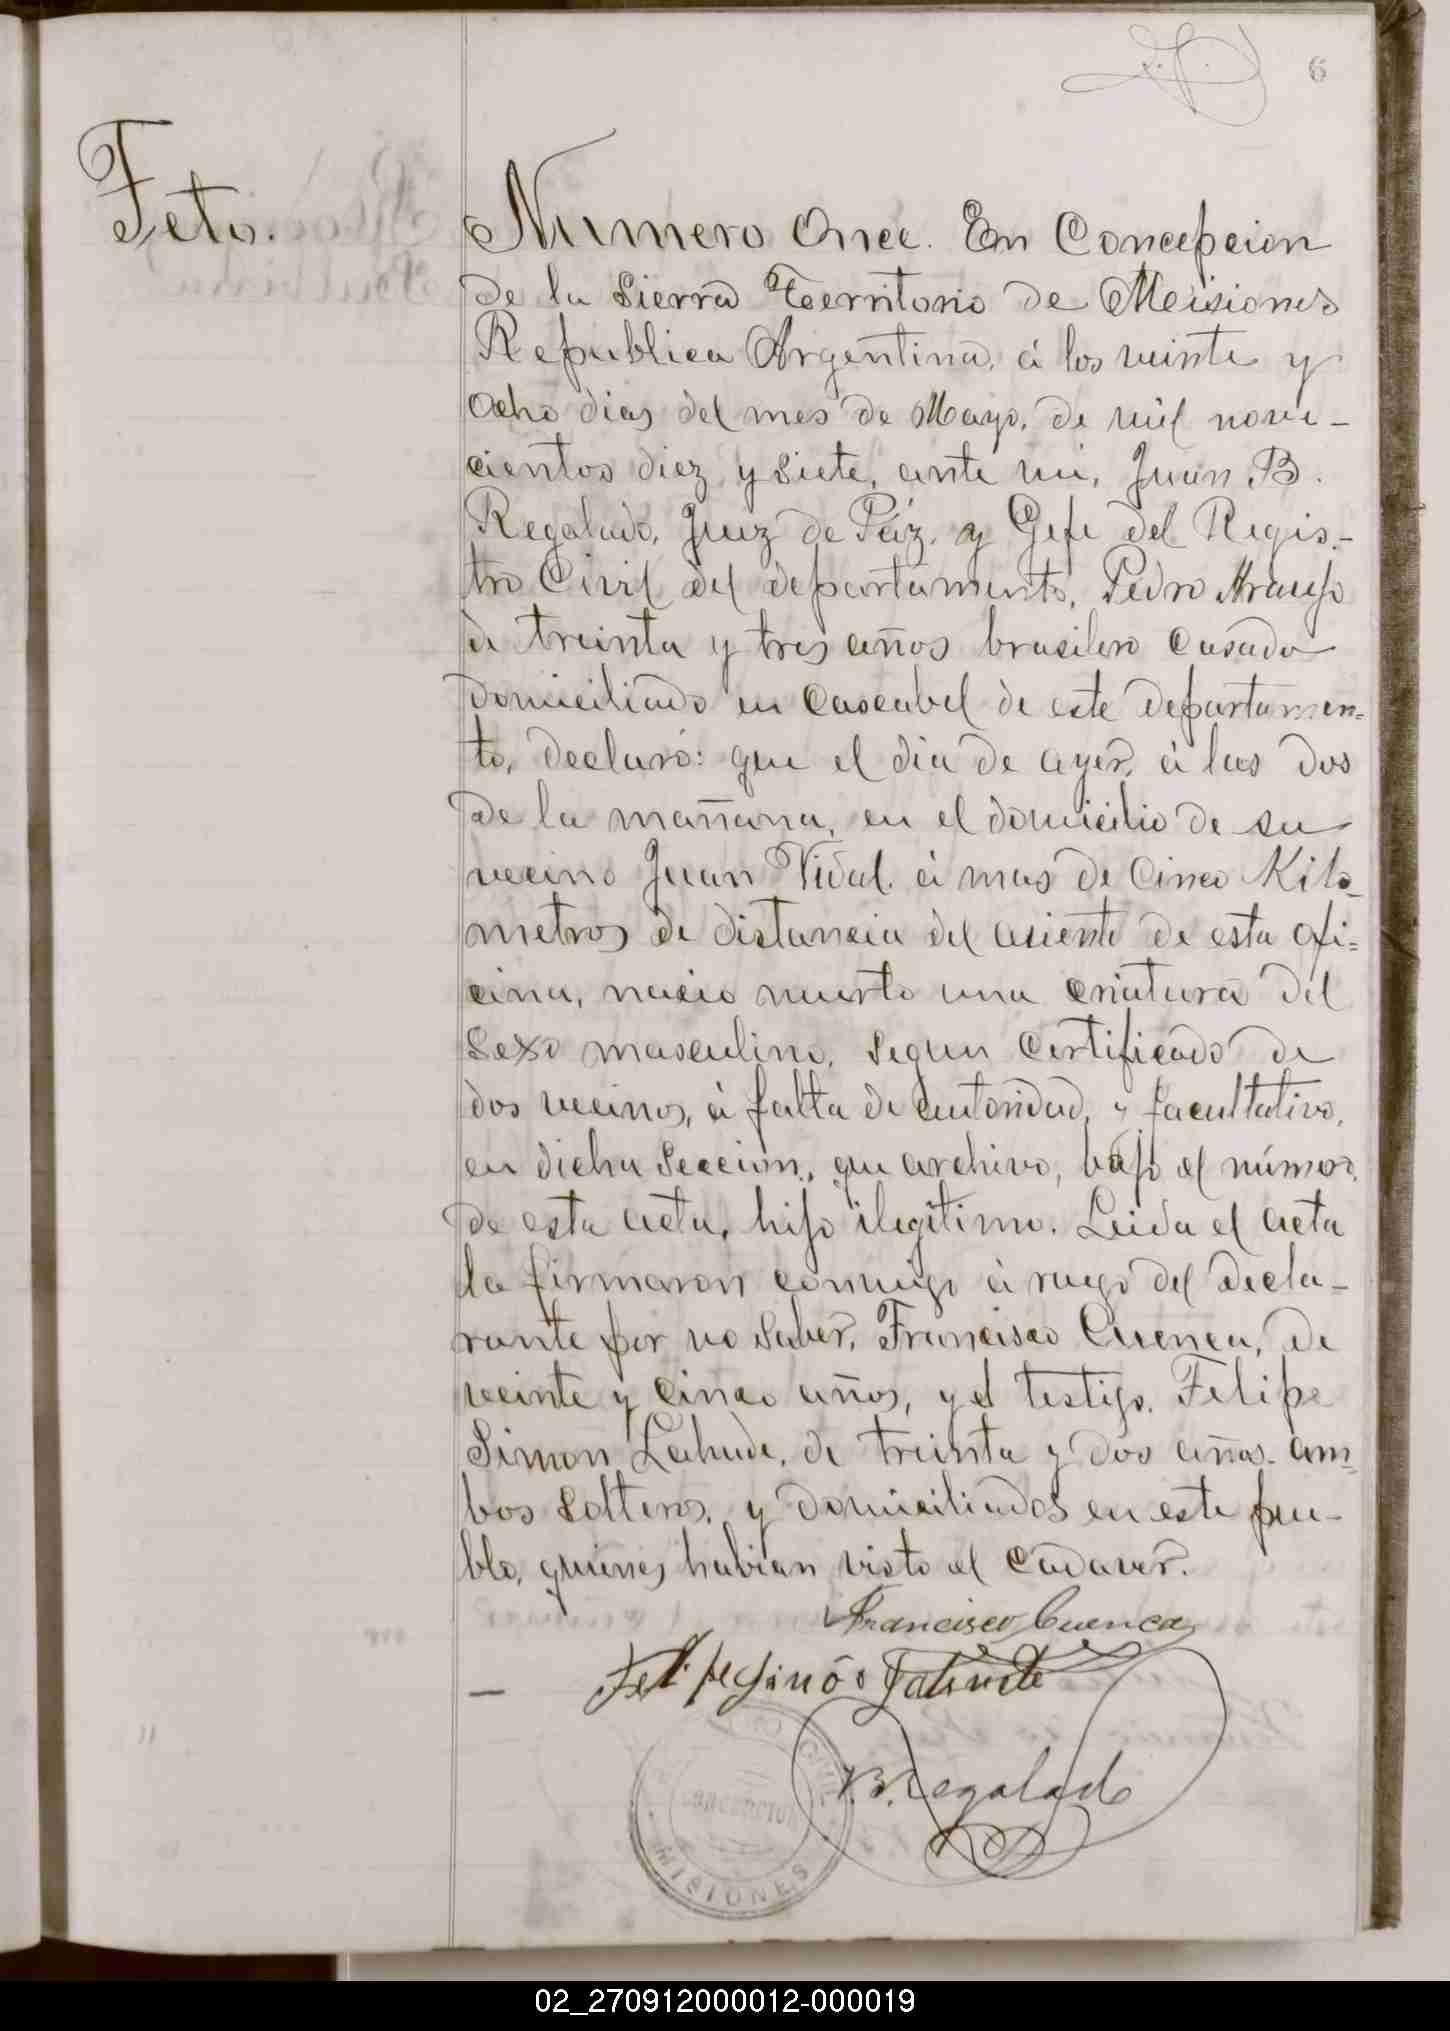 6
Feto.
Numero Once. En Concepcion
de la Sierra Territorio de Misiones
Republica Argentina, á los veinte y
ocho dias del mes de Mayo, de mil nove-
cientos diez y siete, ante mi, Juan B.
Regalado, Juez de Páz, y Gefe del Regis-
tro Civil del departamento, Pedro Araujo
de treinta y tres años brasilero casado
domiciliado en Cascabel de este departamen=
to, declaró: que el dia de ayer, á las dos
de la mañana, en el domicilio de su
vecino Juan Vidal, á mas de Cinco Kilo-
metros de distancia del asiento de esta ofi=
cina, nacio muerto una criatura del
Sexo masculino, segun certificado de
dos vecinos, á falta de autoridad, y facultativo,
en dicha Seccion, que archivo, bajo el número
de esta acta, hijo ilegitimo. Leida el acta
la firmaron conmigo á ruego del decla-
rante por no saber, Francisco Cuenca, de
veinte y cinco años, y el testigo, Felipe
Simon, de treinta y dos años, am=
bos solteros, y domiciliados en este pue-
blo, quienes habian visto el cadaver.
Francisco Cuenca
Felipe
B. Regalado
CIVIL
CONCEPCION
MISIONES
02_270912000012-000019